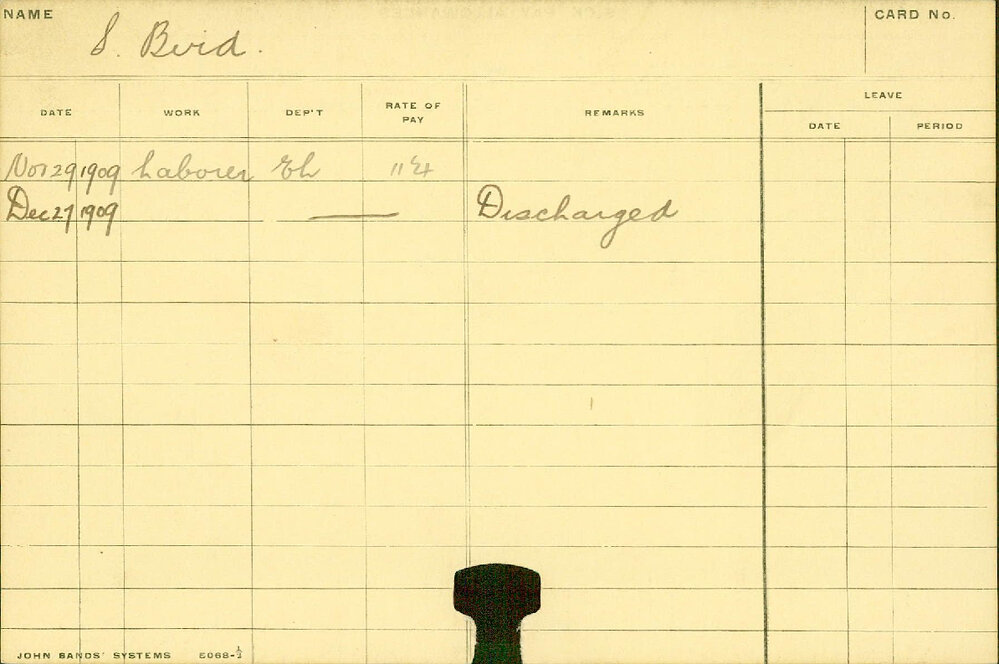 NAME S. Bvid. CARD No.
DATE WORK DEP'T RATE OF PAY REMARKS LEAVE
DATE PERIOD
Nov 29 1909 Laborer Eh 11/4
Dec 27 1909 — Discharged
JOHN SANDS' SYSTEMS 5068-½